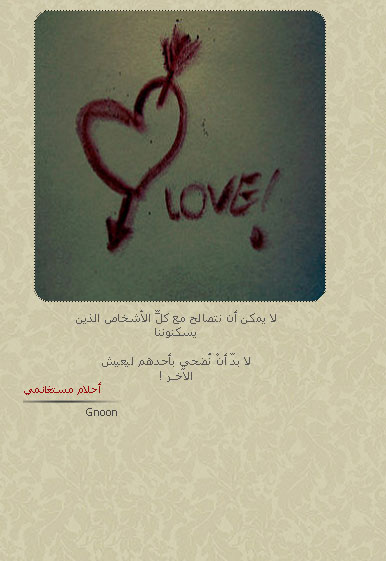 LOVE!
لا يمكن أن نتصالح مع كلِّ الأشخاص الذين
يسكنوننا
لا بدّ أنْ نُضحي بأحدهم ليعيش
الآخـر !
أحلام مستغانمي
Gnoon